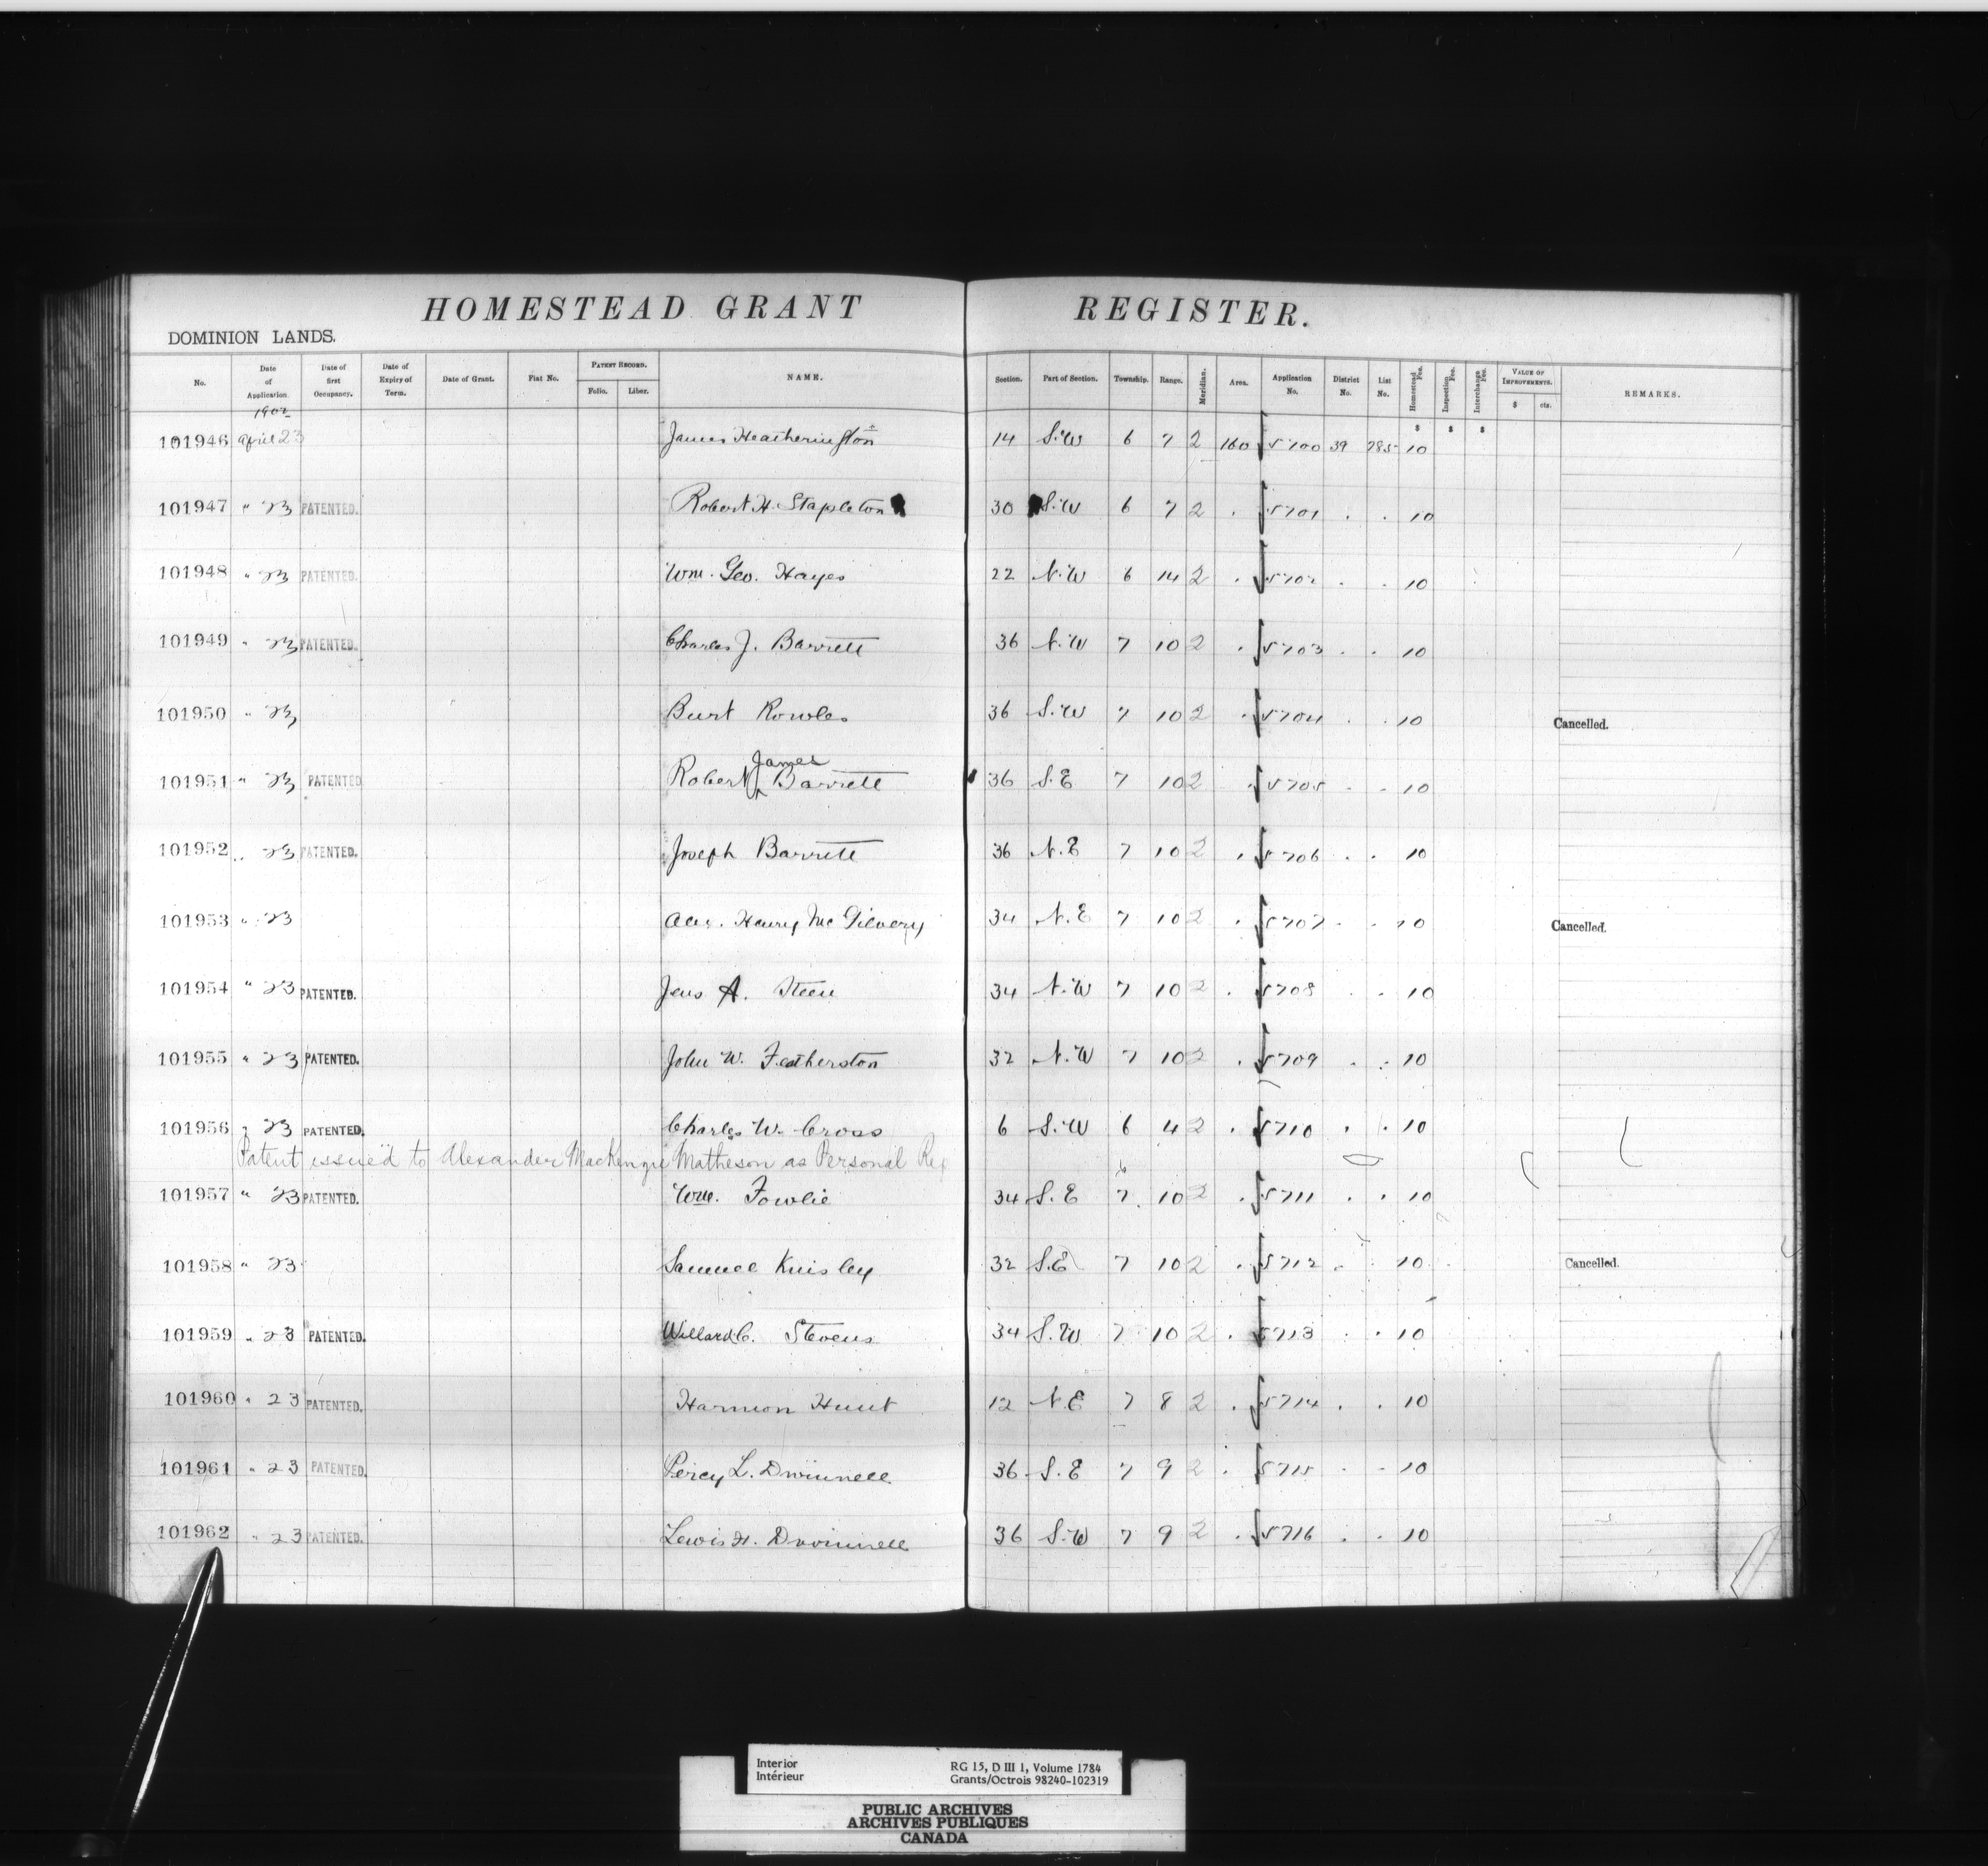 HOMESTEAD GRANT REGISTER.
DOMINION LANDS.
No. Date of Application. Date of first Occupancy. Date of Expiry of Term. Date of Grant. Fiat No. PATENT RECORD. Folio. Liber. NAME. Section. Part of Section. Township. Range. Meridian. Area. Application No. District No. List No. Homestead Fee. Inspection Fee. Interchange Fee. VALUE OF IMPROVEMENTS. $ cts. REMARKS.
1902
$ $ $
101946 April 23 James Heatherington 14 S.W 6 7 2 160 5700 39 785 10
101947 " 23 PATENTED. Robert H. Stapleton 30 S.W 6 7 2 . 5701 . . 10
101948 " 23 PATENTED. Wm. Geo. Hayes 22 N.W 6 14 2 . 5702 . . 10
101949 " 23 PATENTED. Charles J. Barrett 36 N.W 7 10 2 . 5703 . . 10
101950 " 23 Burt Rowles 36 S.W 7 10 2 . 5704 . . 10 Cancelled.
James
101951 " 23 PATENTED Robert Barrett 36 S.E 7 10 2 . 5705 . . 10
101952 " 23 PATENTED. Joseph Barrett 36 N.E 7 10 2 . 5706 . . 10
101953 " 23 Alex. Henry McGilvery 34 N.E 7 10 2 . 5707 . . 10 Cancelled.
101954 " 23 PATENTED. Jens A. Steen 34 N.W 7 10 2 . 5708 . . 10
101955 " 23 PATENTED. John W. Featherston 32 N.W 7 10 2 . 5709 . . 10
101956 " 23 PATENTED. Charles W. Cross 6 S.W 6 4 2 . 5710 . . 10
Patent issued to Alexander MacKenzie Matheson as Personal Rep
101957 " 23 PATENTED. Wm. Fowlie 34 S.E 7 10 2 . 5711 . . 10
101958 " 23 Samuel Knisley 32 S.E 7 10 2 . 5712 . . 10 Cancelled.
101959 " 23 PATENTED. Willard C. Stevens 34 S.W 7 10 2 . 5713 . . 10
101960 " 23 PATENTED. Harmon Hunt 12 N.E 7 8 2 . 5714 . . 10
101961 " 23 PATENTED. Percy L. Dwinnell 36 S.E 7 9 2 . 5715 . . 10
101962 " 23 PATENTED. Lewis H. Dwinnell 36 S.W 7 9 2 . 5716 . . 10
Interior
Intérieur
RG 15, D III 1, Volume 1784
Grants/Octrois 98240-102319
PUBLIC ARCHIVES
ARCHIVES PUBLIQUES
CANADA